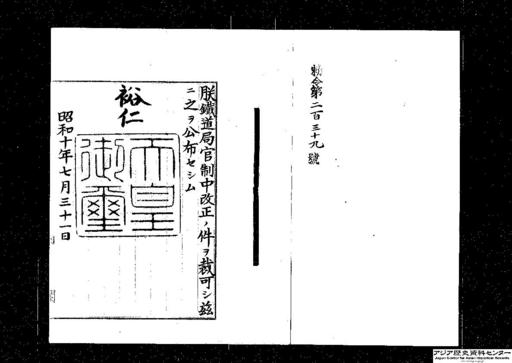 勅令第二百三十九號
朕鐵道局官制中改正ノ件ヲ裁可シ茲
ニ之ヲ公布セシム
裕仁
天皇
御璽
昭和十年七月三十一日
アジア歴史資料センター
Japan Center for Asian Historical Records